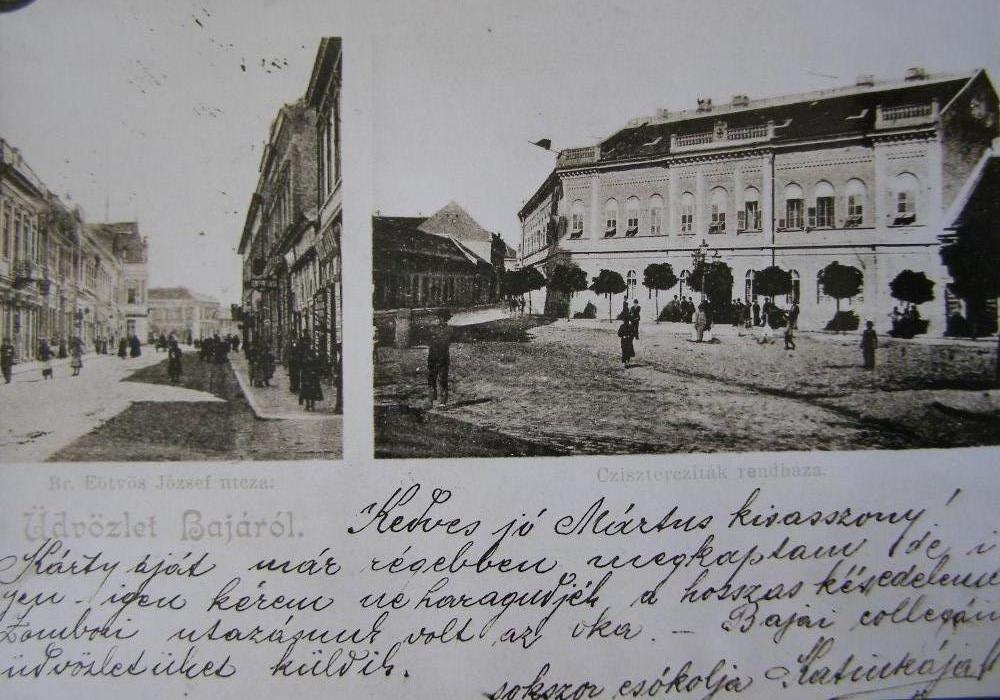 Br. Eötvös József utcza:
Cziszterciták rendháza.
Üdvözlet Bajáról.
Kedves jó Mártus kisasszony!
Kártyáját már régebben megkaptam de, i
gen - igen kérem ne haragudjék a hosszas késedelemé
Zombori utazásunk volt az oka. - Bajai collegáin
üdvözletüket küldik.
sokszor csókolja Katinkája